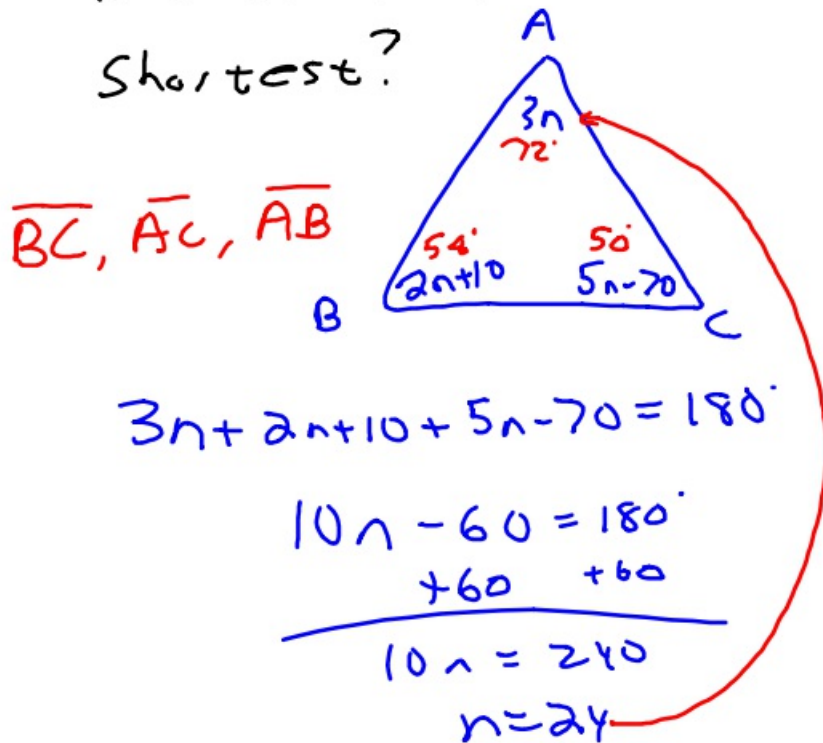 Shortest?
A
3n
72°
BC, AC, AB
58° 50°
2n+10 5n-70
B C
3n+2n+10+5n-70=180°
10n-60=180°
+60 +60
10n=240
n=24